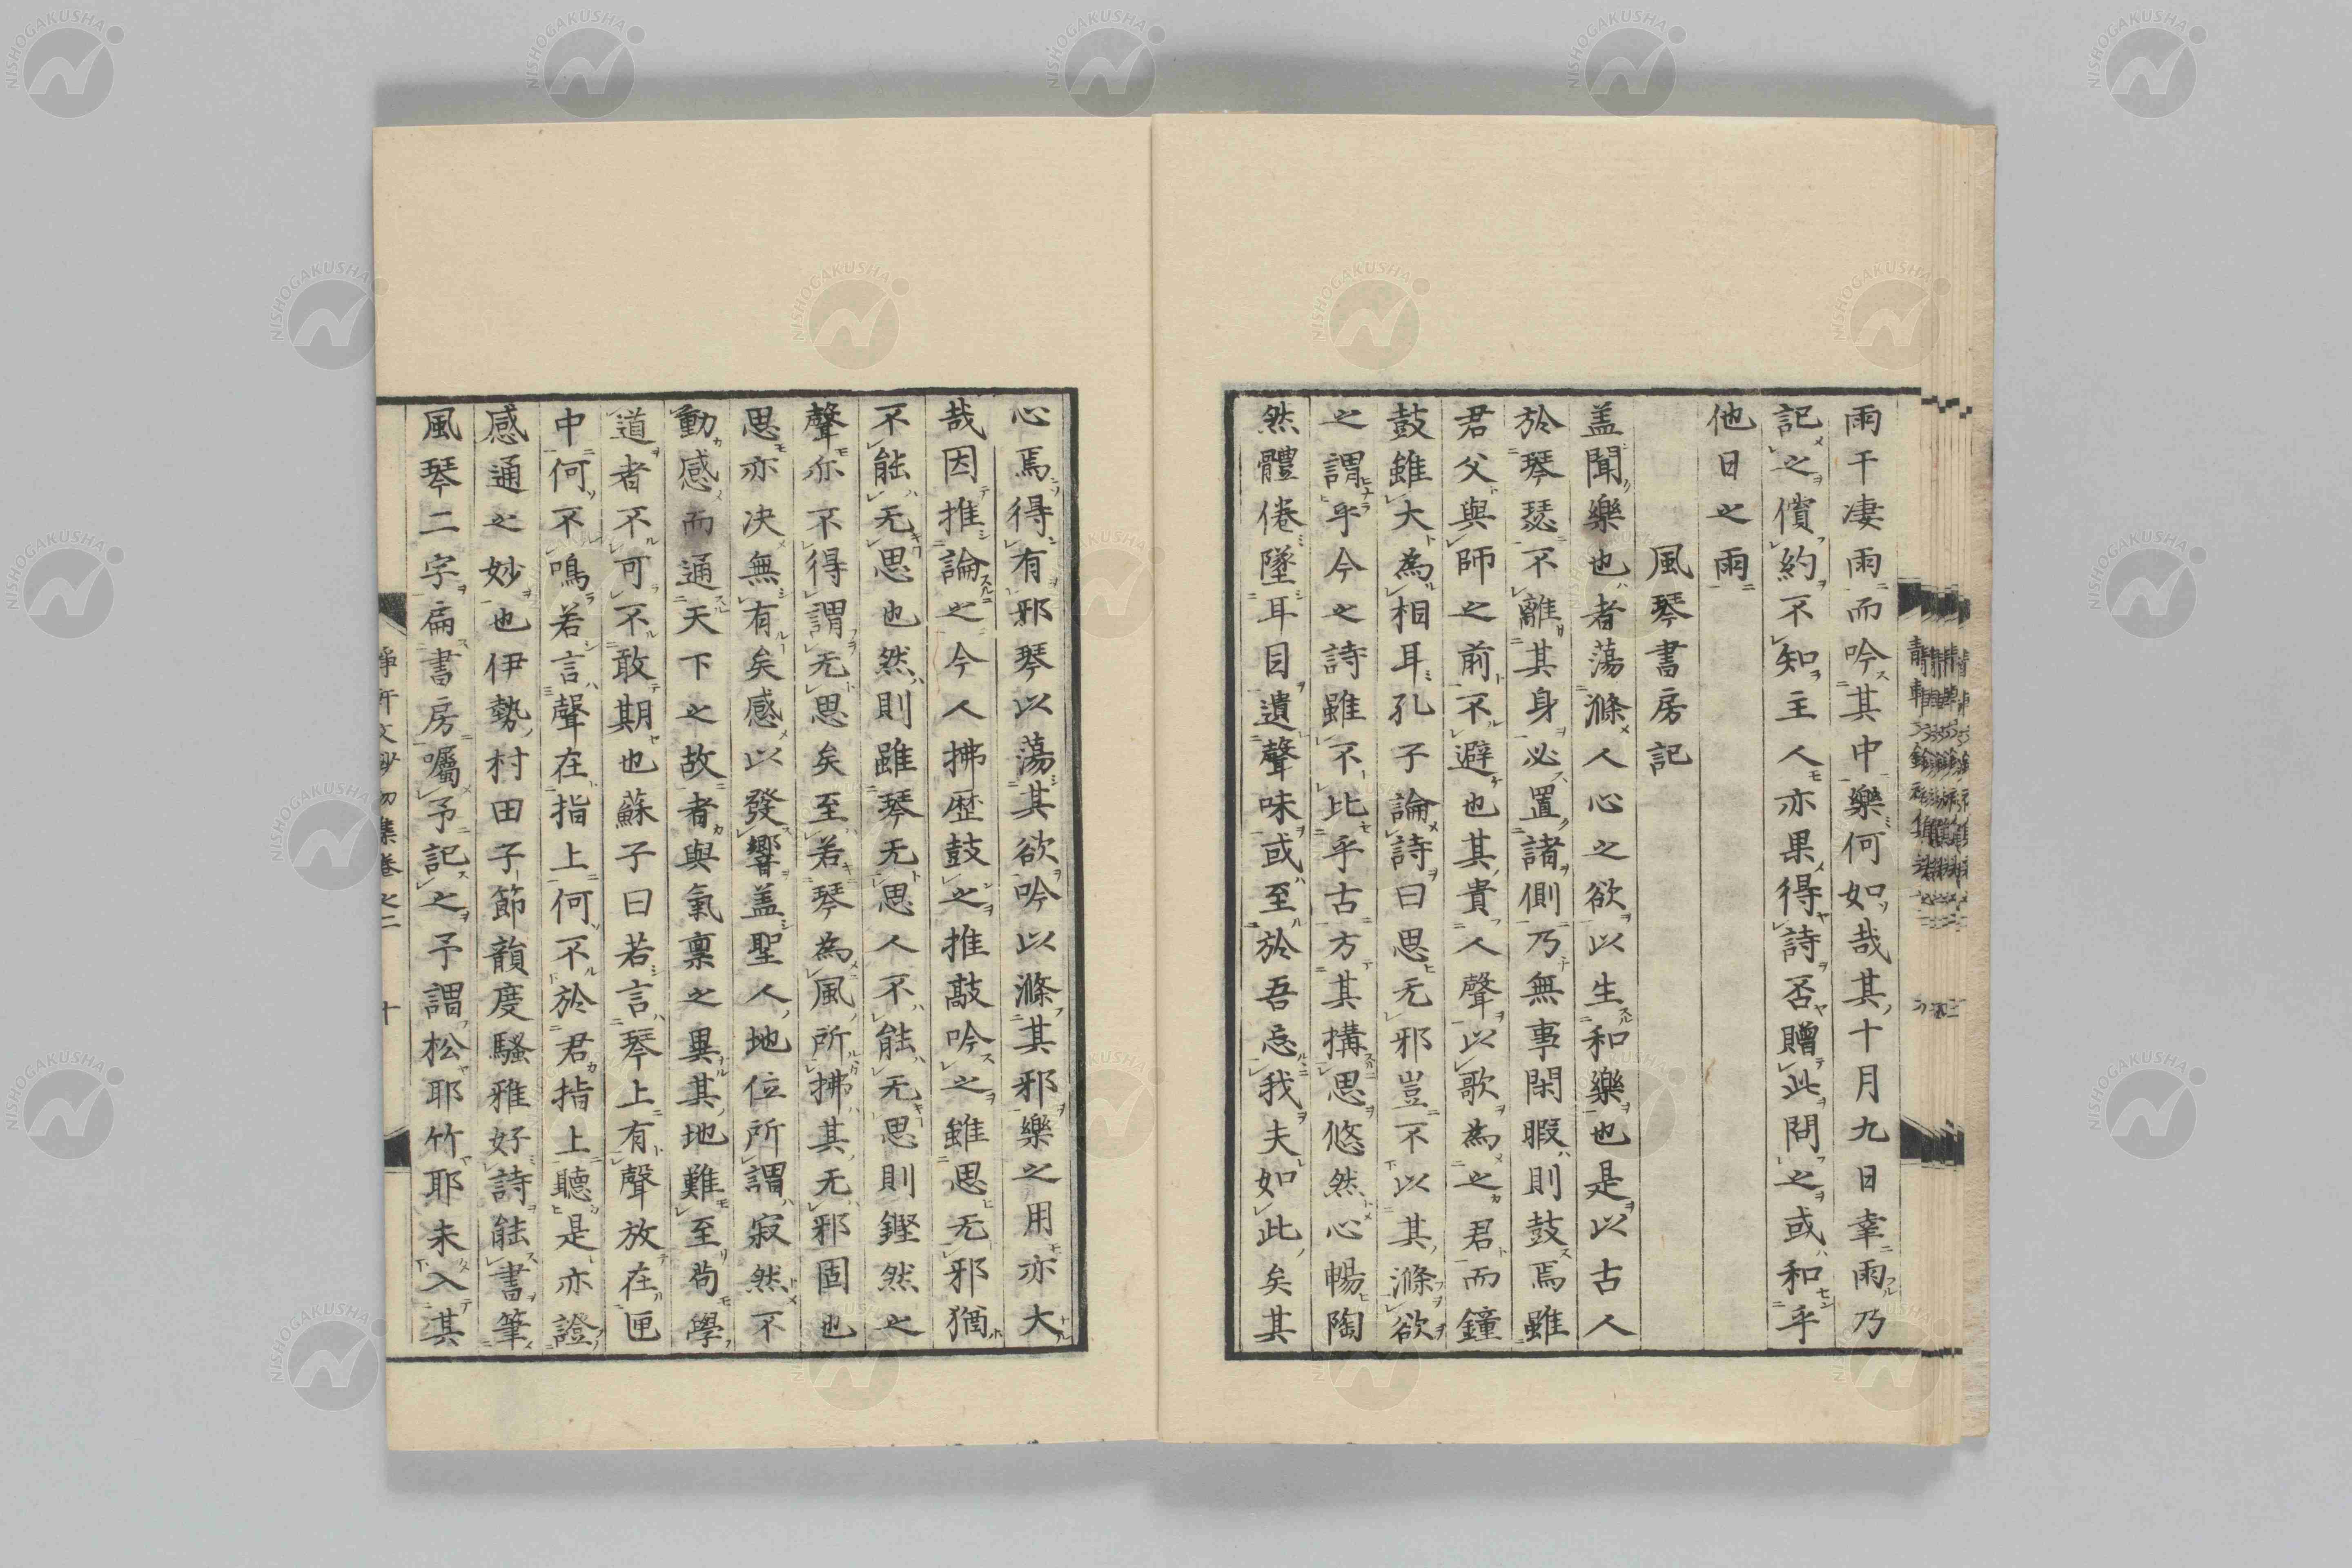 雨干凄雨而吟其中樂何如哉其十月九日幸雨乃
記之償約不知主人亦果得詩否贈此問之或和乎
他日之雨
風琴書房記
盖聞樂也者蕩滌人心之欲以生和樂也是以古人
於琴瑟不離其身必置諸側乃無事閑暇則鼓焉雖
君父與師之前不避也其貴人聲以歌為之君而鐘
鼓雖大為相耳孔子論詩曰思无邪豈不以其滌欲
之謂乎今之詩雖不比乎古方其搆思悠然心暢陶
然體倦墜耳目遺聲味或至於吾忘我夫如此矣其
心焉得有邪琴以蕩其欲吟以滌其邪樂之用亦大
哉因推論之今人拂歷鼓之推敲吟之雖思无邪猶
不能无思也然則雖琴无思人不能无思則鏗然之
聲亦不得謂无思矣至若琴為風所拂其无邪固也
思亦决無有矣感以發響盖聖人地位所謂寂然不
動感而通天下之故者與氣禀之異其地難至苟學
道者不可不敢期也蘇子曰若言琴上有聲放在匣
中何不鳴若言聲在指上何不於君指上聽是亦證
感通之妙也伊勢村田子節韻度騷雅好詩能書筆
風琴二字扁書房囑予記之予謂松耶竹耶未入其
靜軒文鈔初集卷之二 十
NISHOGAKUSHA